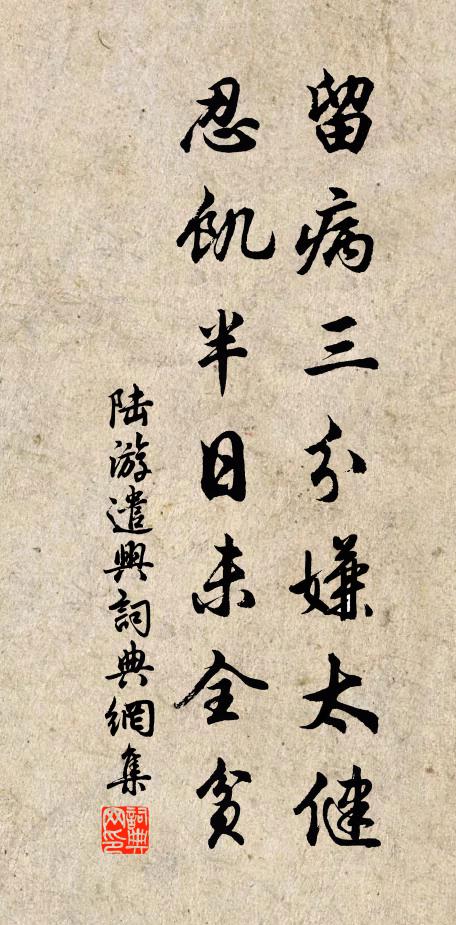 留病三分嫌太健
忍飢半日未全貧
陆游遣興詞典網集
詞典網印